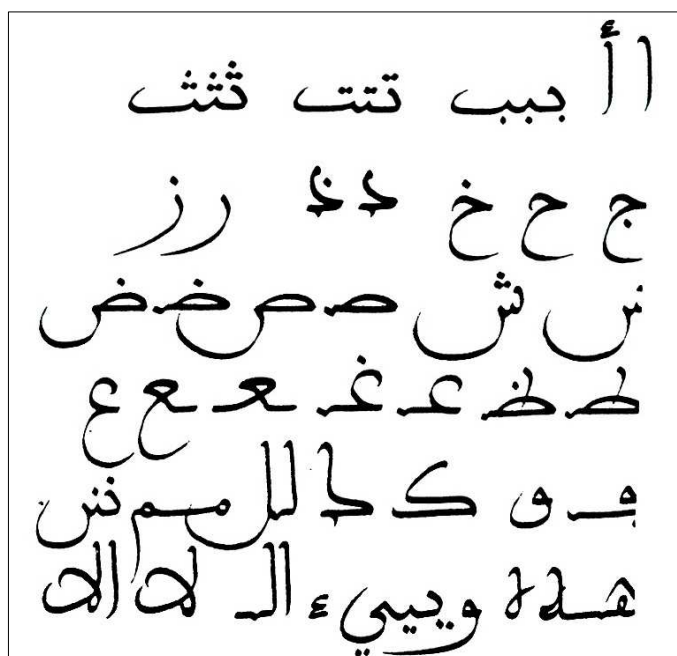 ا أ ببب تتت ثثث
ج ح خ د ذ ر ز
س ش صـ ص ضـ ض
ط ظ عـ غـ ـعـ ـع ع
ك لل مـم نن
هـه ه و ييي ء الـ لا الا